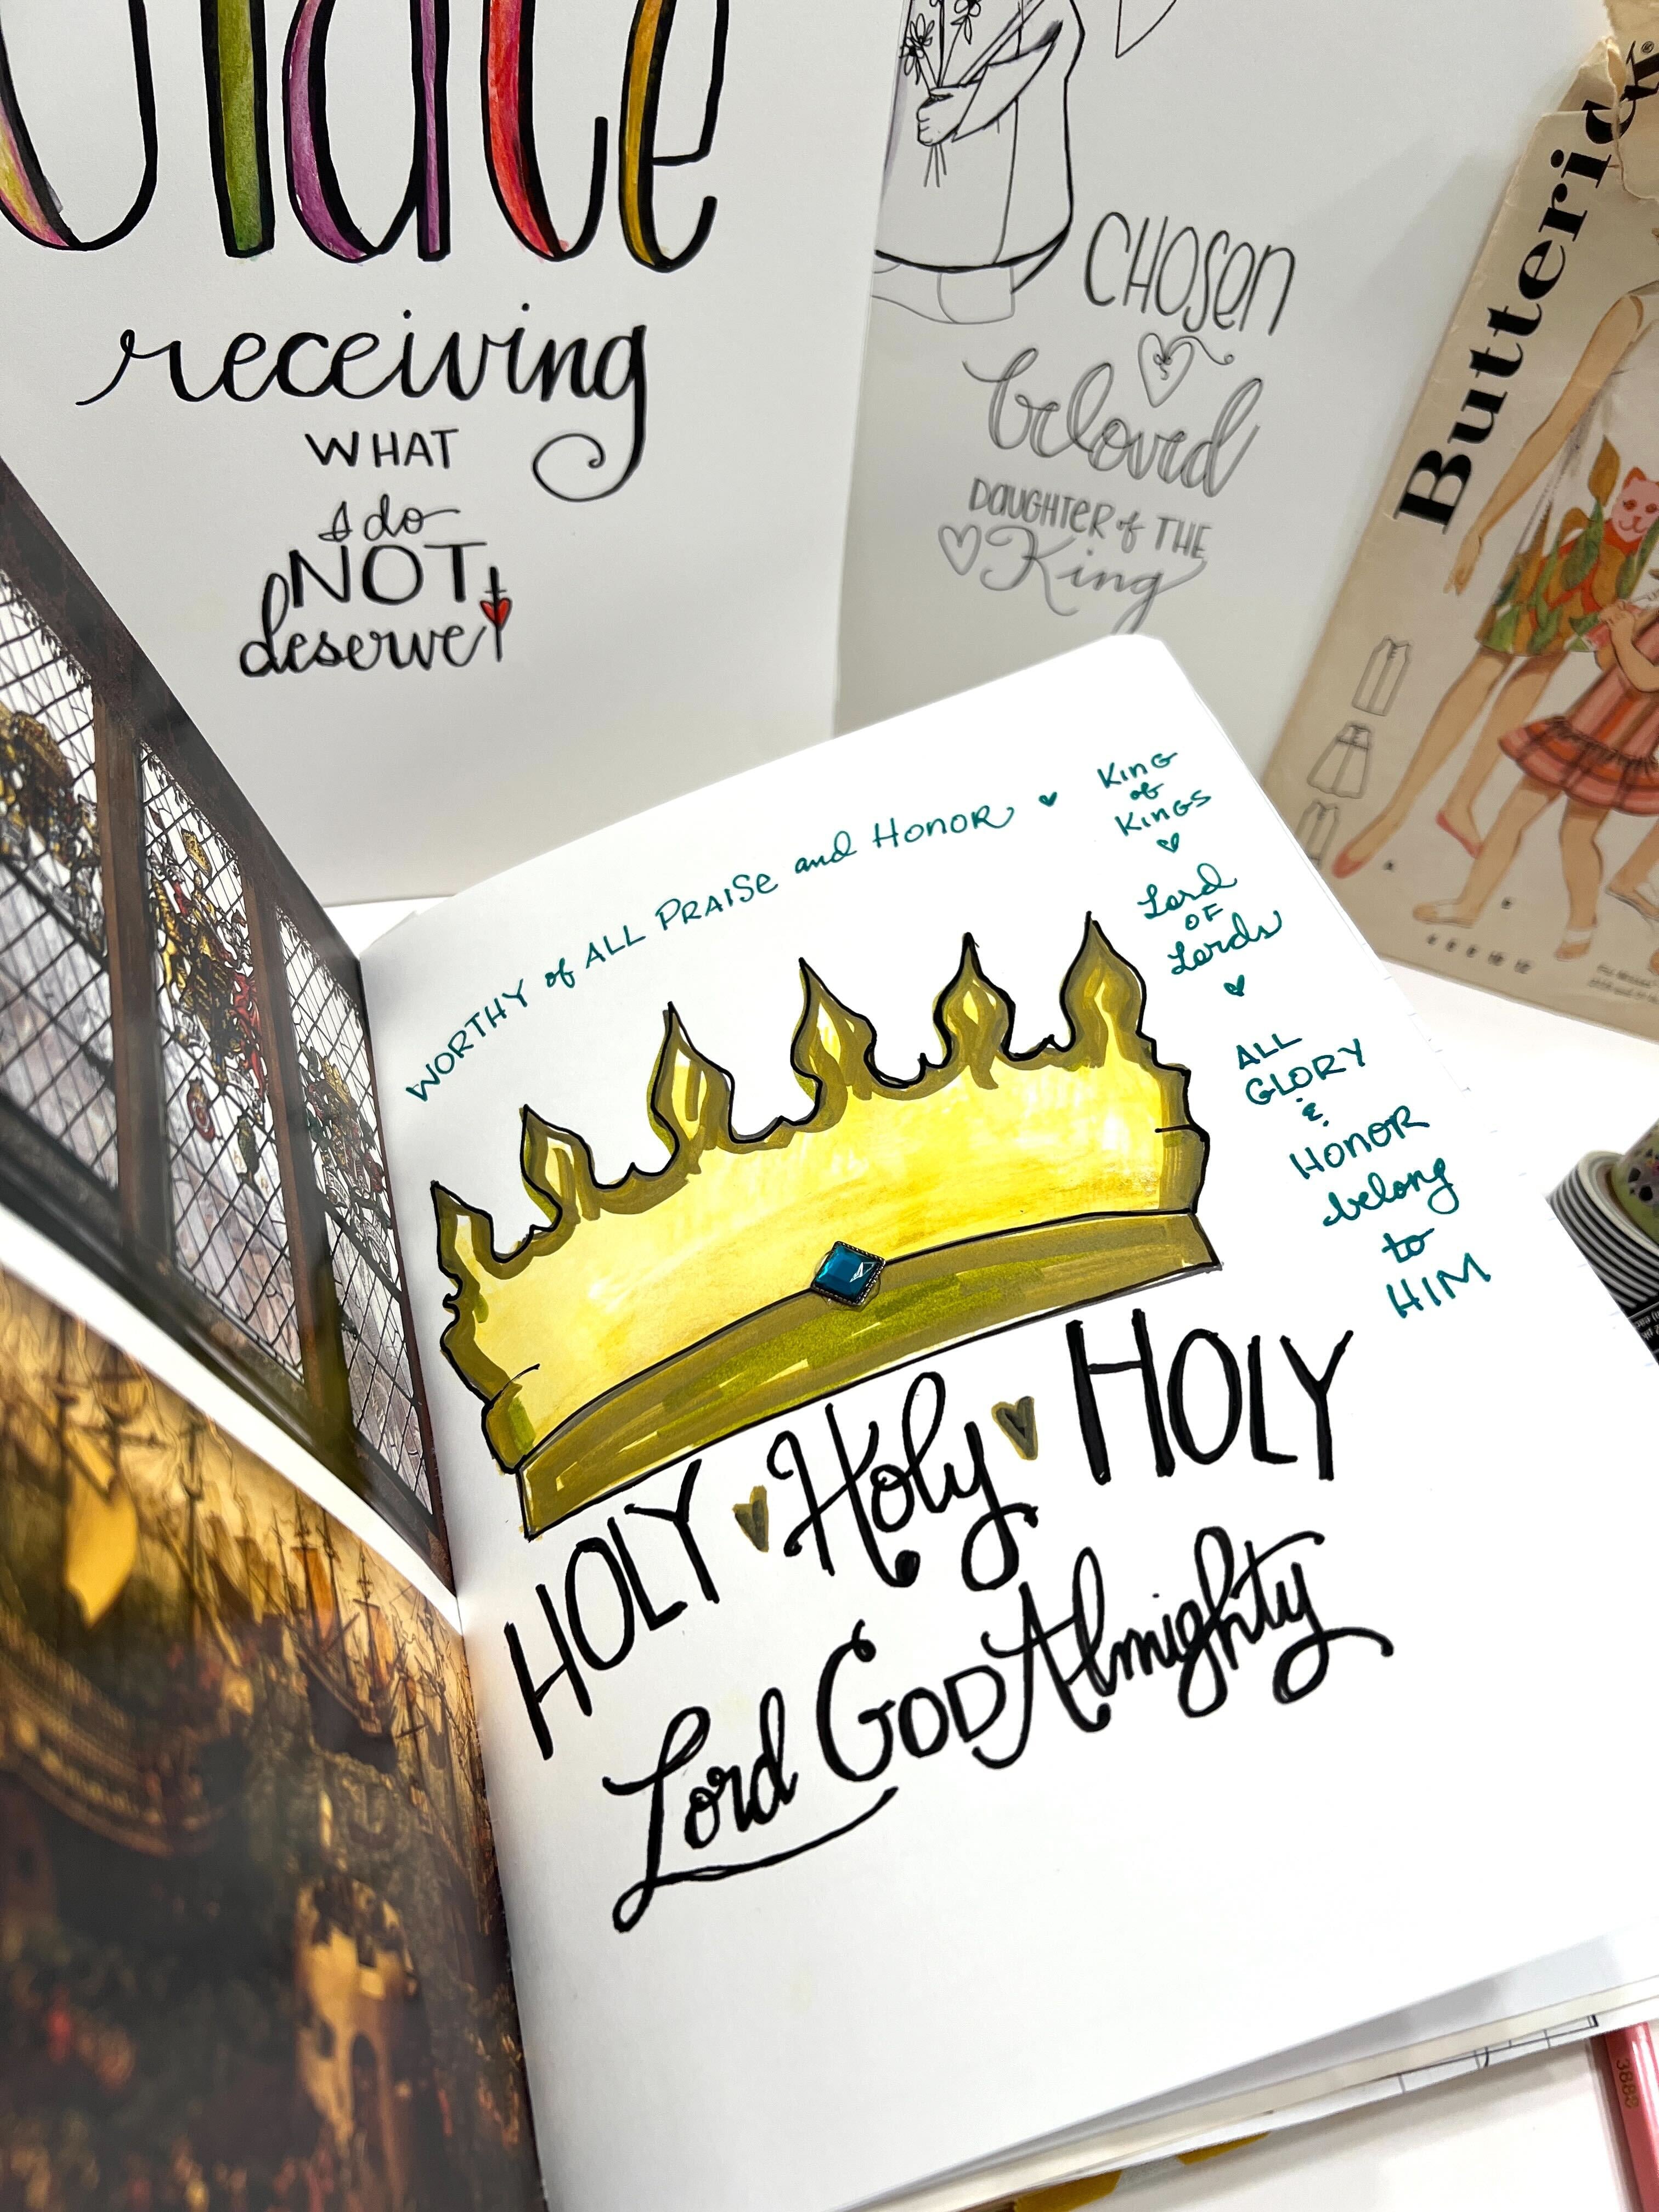 receiving
WHAT
I do
NOT
deserve
CHOSEN
beloved
DAUGHTER of THE
King
Butterick
WORTHY of ALL PRAISE and HONOR
KING
of
KINGS
Lord
OF
Lords
ALL
GLORY
&
HONOR
belong
to
HIM
HOLY Holy HOLY
Lord GOD Almighty
3888